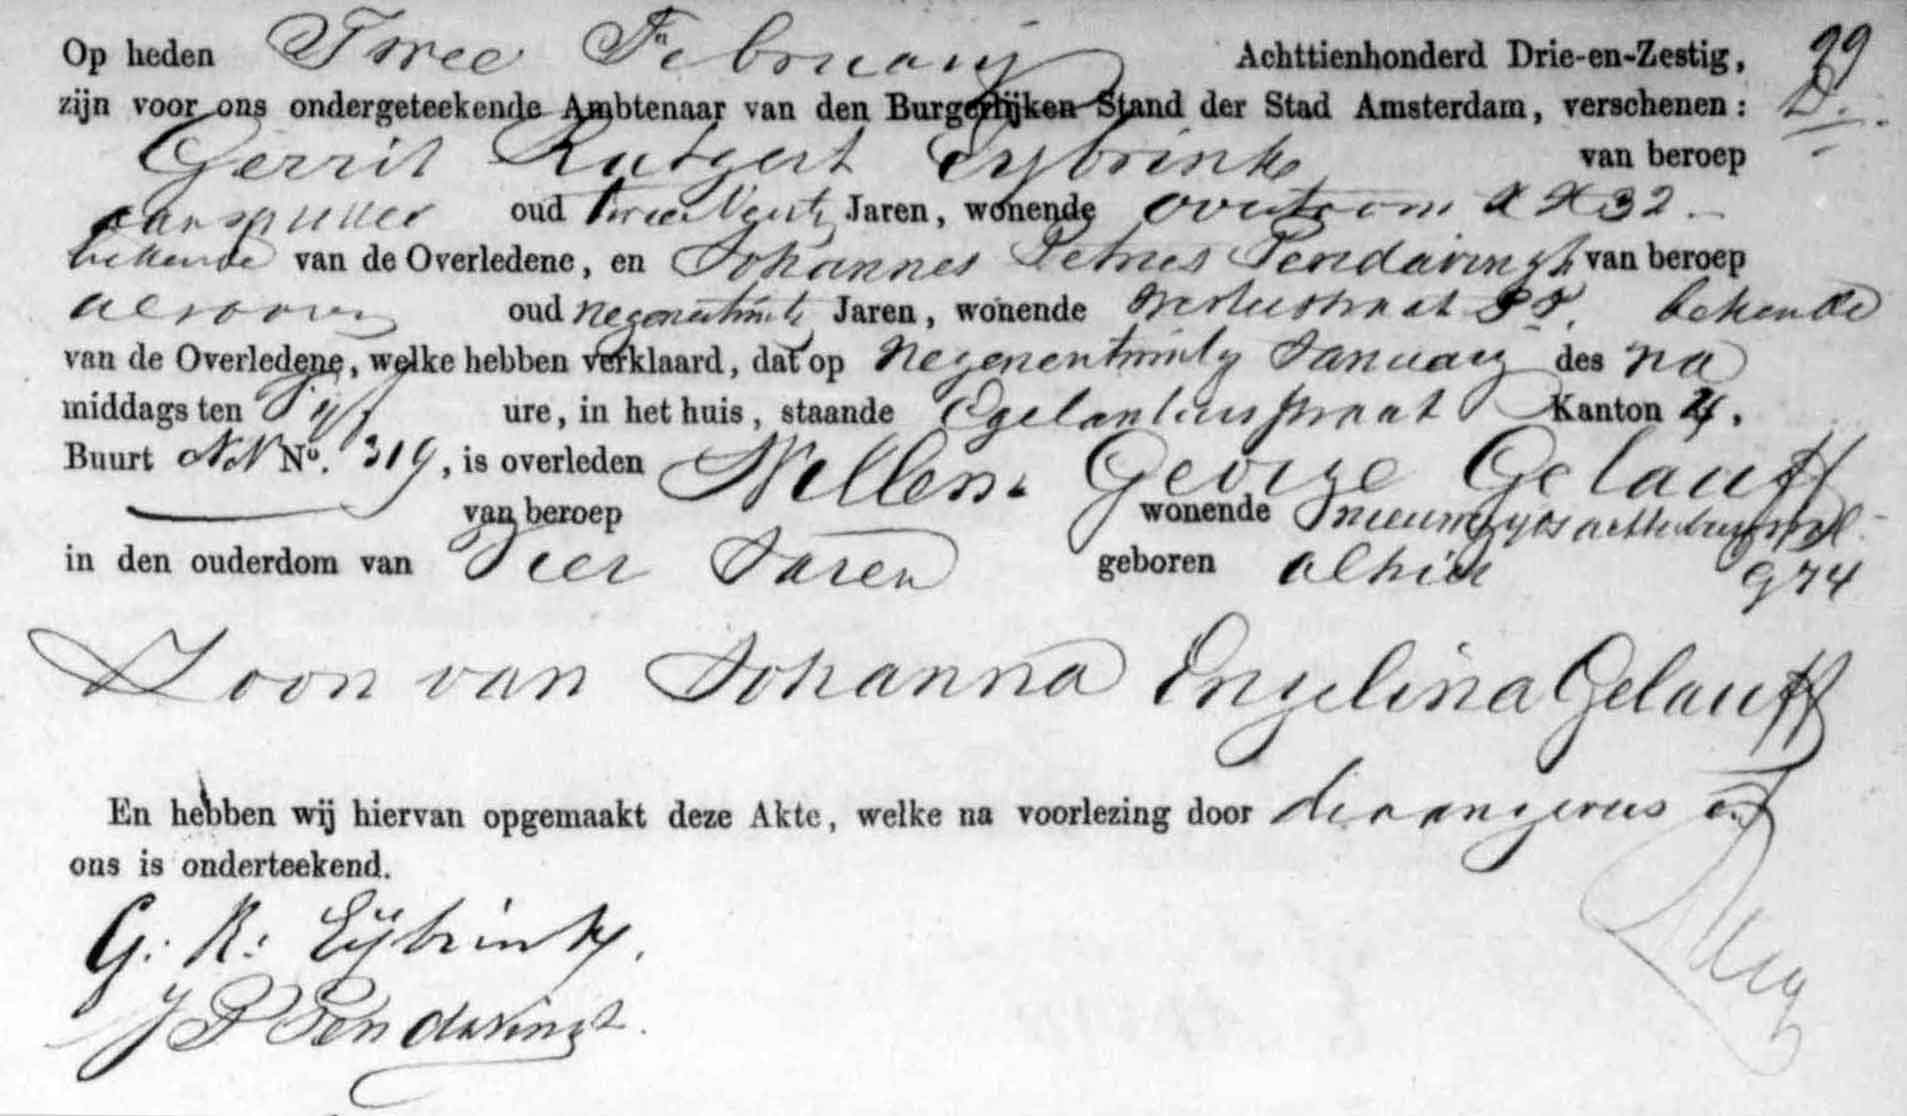 Op heden Twee Februarij Achttienhonderd Drie-en-Zestig, 99
zijn voor ons ondergeteekende Ambtenaar van den Burgerlijken Stand der Stad Amsterdam, verschenen: D.
Gerrit Rutgert Eybrink van beroep
aanspreker oud Jaren, wonende overtoom X X 32
bekende van de Overledene, en Johannes Petrus Pendavingh van beroep
als voren oud negenentwintig Jaren, wonende bekende
van de Overledene, welke hebben verklaard, dat op negenentwintig Januarij des na
middags ten vijf ure, in het huis, staande Egelantiersstraat Kanton 4.
Buurt NN No. 319, is overleden Willem George Gelauff
van beroep wonende
in den ouderdom van Vier Jaren geboren alhier 974
Zoon van Johanna Engelina Gelauff
En hebben wij hiervan opgemaakt deze Akte, welke na voorlezing door de aangevers en
ons is onderteekend.
G. R. Eijbrink.
J P Pendavingh.